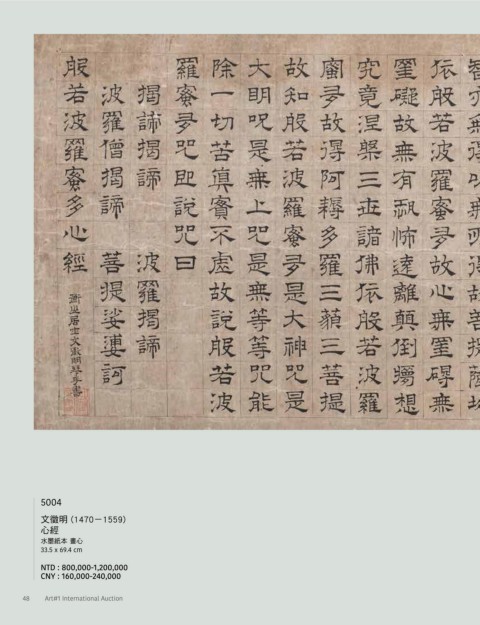 智亦無得以無所得故菩提薩埵
依般若波羅蜜多故心無罣碍無
罣礙故無有恐怖遠離顛倒夢想
究竟涅槃三世諸佛依般若波羅
蜜多故得阿耨多羅三藐三菩提
故知般若波羅蜜多是大神咒是
大明呪是無上咒是無等等咒能
除一切苦真實不虛故說般若波
羅蜜多咒即說咒曰
揭諦揭諦 波羅揭諦
波羅僧揭諦 菩提娑婆訶
般若波羅蜜多心經
衡山居士文徵明手書
5004
文徵明 (1470－1559)
心經
水墨紙本 畫心
33.5 x 69.4 cm
NTD : 800,000-1,200,000
CNY : 160,000-240,000
48 Art#1 International Auction